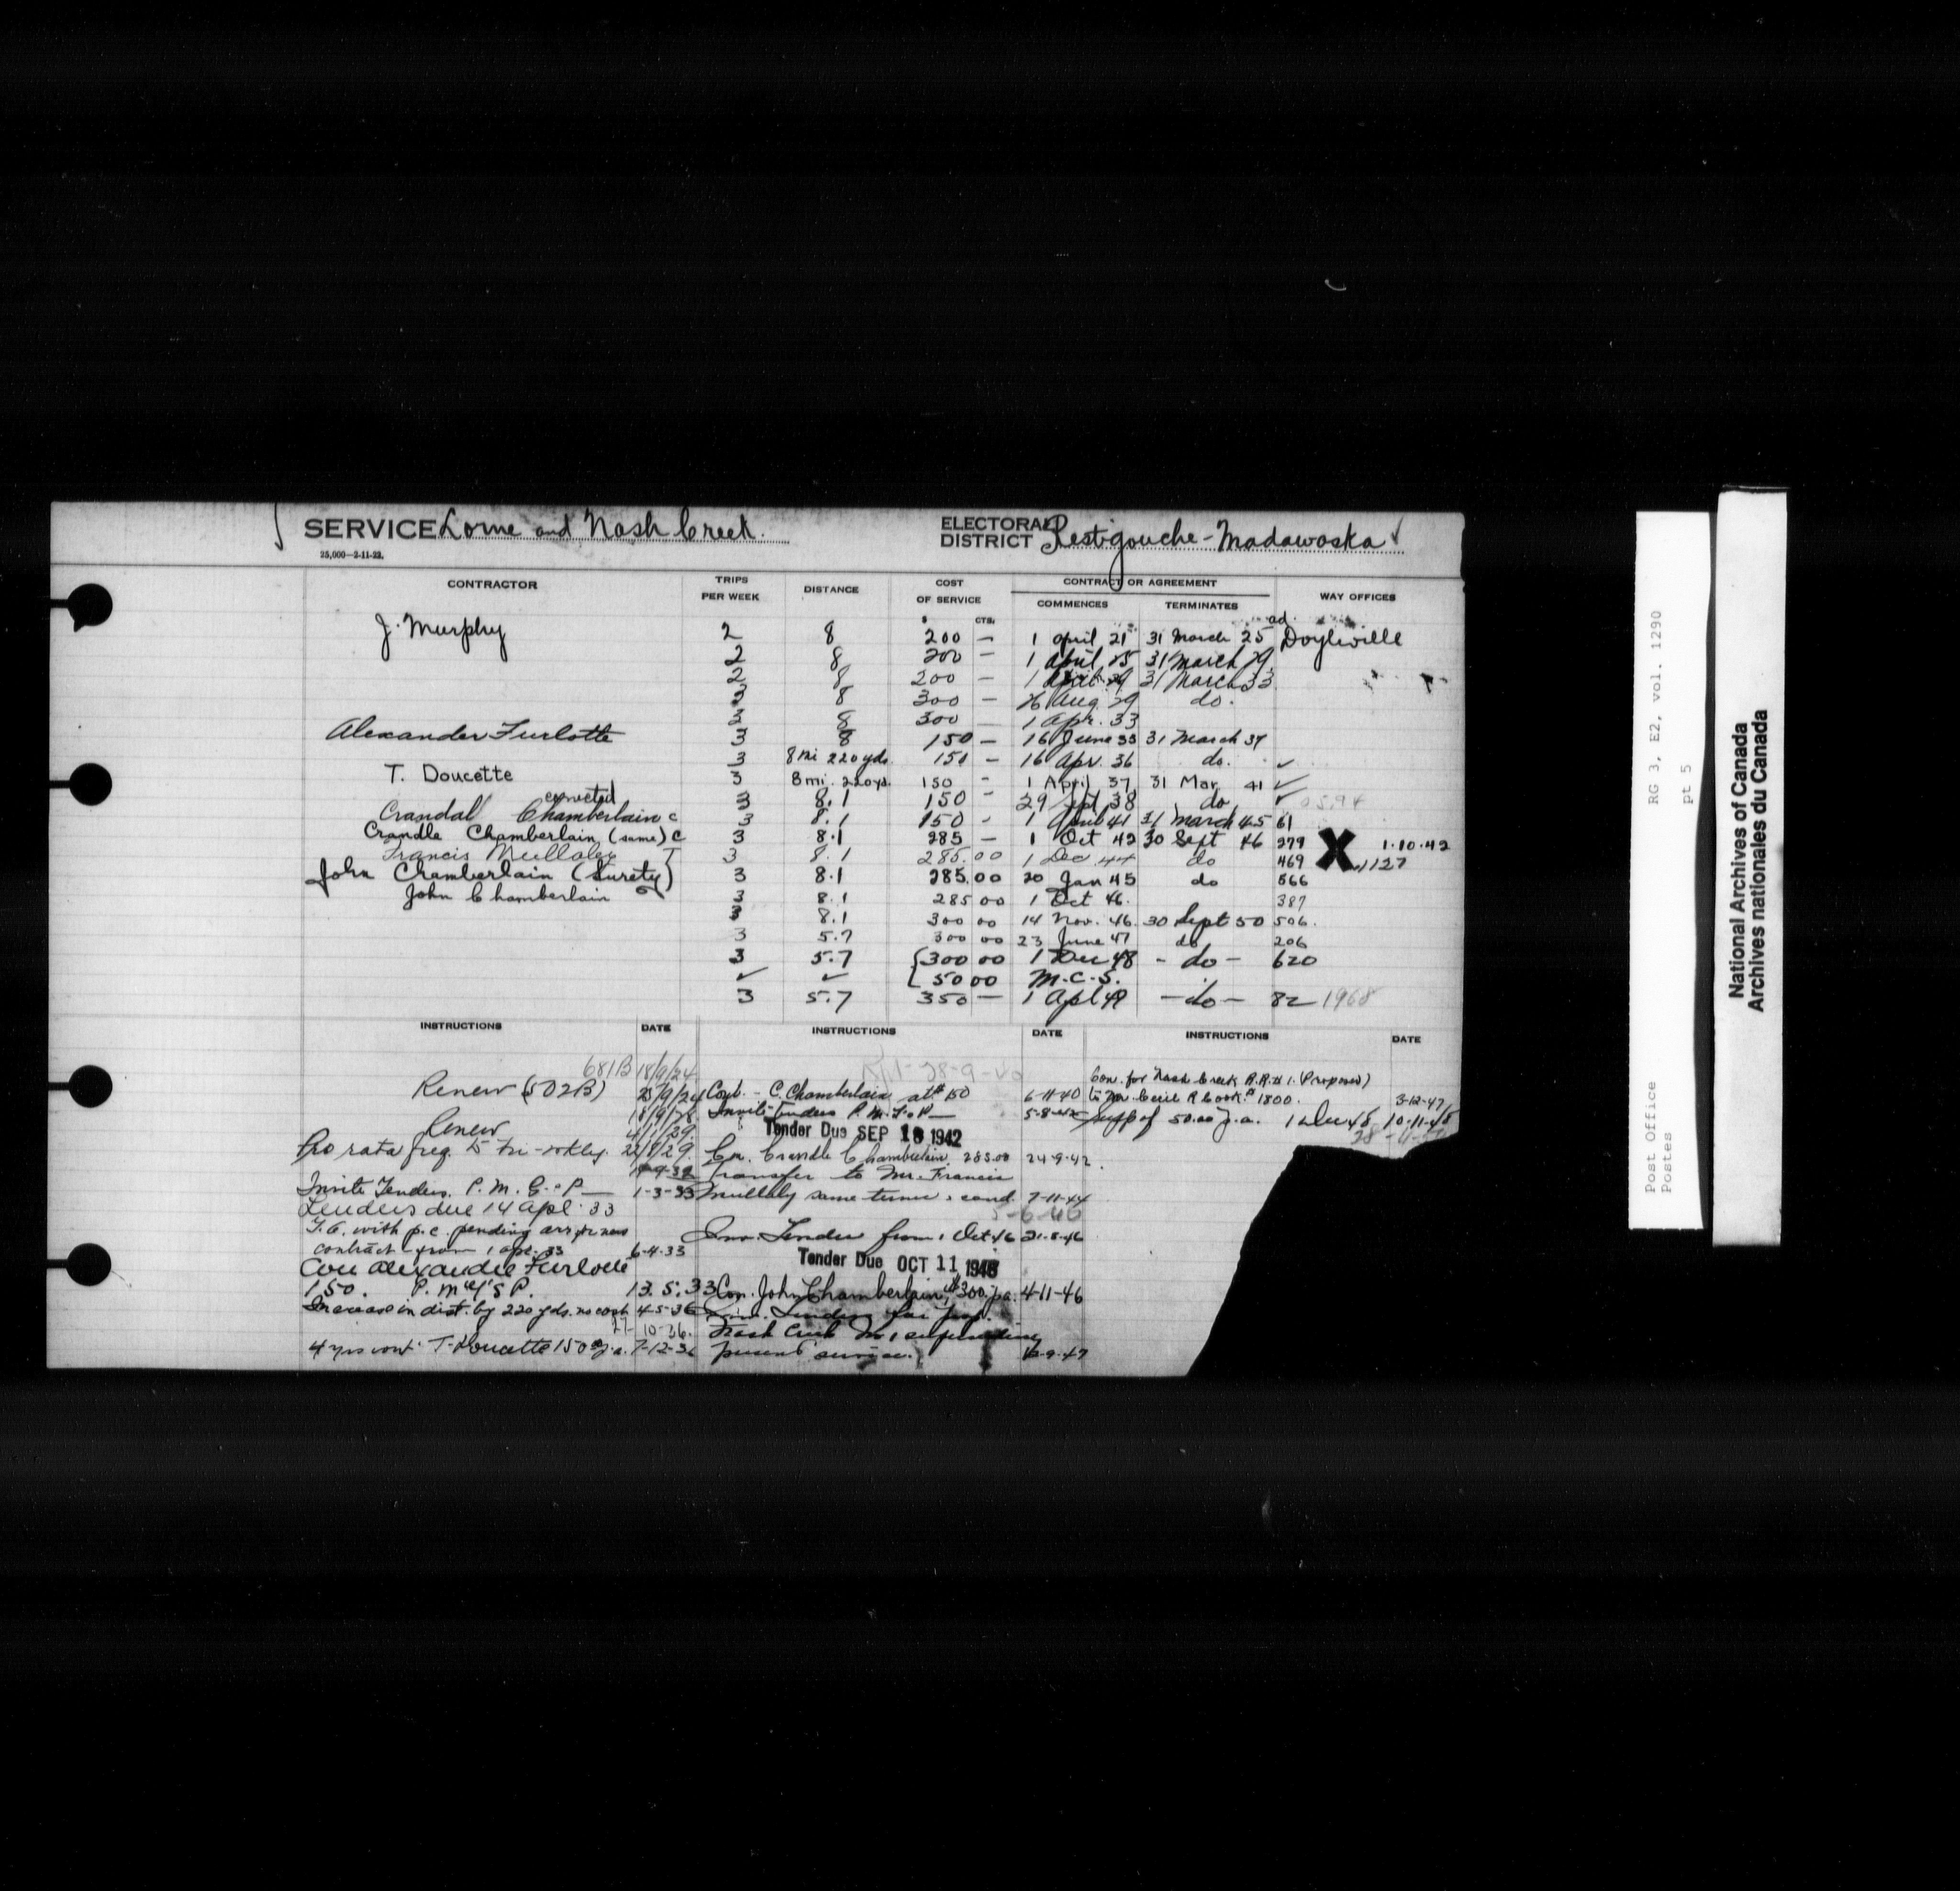 SERVICE Lorne and Nash Creek.
ELECTORAL DISTRICT Restigouche - Madawaska
25,000—2-11-22.
CONTRACTOR TRIPS PER WEEK DISTANCE COST OF SERVICE CONTRACT OR AGREEMENT WAY OFFICES
$ CTS. COMMENCES TERMINATES
J. Murphy 2 8 200 — 1 April 21 31 March 25 Doyleville
2 8 200 — 1 April 25 31 March 29
2 8 200 — 1 April 29 31 March 33
3 8 300 — 26 Aug. 29 do.
3 8 300 — 1 Apr. 33
Alexander Furlotte 3 8 150 — 16 June 33 31 March 37
3 8 mi 220 yds. 150 — 16 Apr. 36 do. ✓
T. Doucette 3 8 mi. 220 yds. 150 - 1 April 37 31 Mar 41 ✓
3 8.1 150 - 29 Sept 38 do ✓
Crandal Chamberlain c 3 8.1 150 - 1 April 41 31 March 45 61
Crandle Chamberlain (same) c 3 8.1 285 — 1 Oct 42 30 Sept 46 279 X 1.10.42
Francis Mullaley T 3 8.1 285.00 1 Dec 44 do 469 1127
John Chamberlain (Surety) 3 8.1 285.00 20 Jan 45 do 566
John Chamberlain 3 8.1 285 00 1 Oct 46. 387
3 8.1 300 00 14 Nov. 46. 30 Sept 50 506.
3 5.7 300 00 23 June 47 do 206
3 5.7 300 00 1 Dec 48 - do - 620
✓ ✓ 50 00 M.C.S.
3 5.7 350 — 1 Apl 49 - do - 82 1968
INSTRUCTIONS DATE
681B 18/9/24
Renew (502B) 23/9/24
18/9/28
Renew
Pro rata freq. to tri-wkly. 22/8/29.
Invite Tenders. P.M.G. P— 1-3-33
Tenders due 14 Apl. 33
T.O. with p.c. pending arr for new
contract from 1 Apr. 33 6-4-33
Con Alexander Furlotte
150. P. 13.5.33
Increase in dist. by 220 yds. no cost 4-5-36
27-10-36.
4 yrs cont. T. Doucette 150 p.a. 7-12-36
INSTRUCTIONS DATE
28-9-40
Cont. - C. Chamberlain at $150 6-11-40
Invite Tenders P.M.
Tender Due SEP 18 1942
Con. Crandle Chamberlain 285.00 24-9-42.
Transfer to Mr. Francis
Mullaly same terms & cond. 7-11-44
5-6-46
Inv. Tender from 1 Oct 46 21-8-46
Tender Due OCT 11 1946
Con. John Chamberlain, $300. p.a. 4-11-46
Inv. Tenders for prop.
Nash Creek superseding
present service.
INSTRUCTIONS DATE
Con. for Nash Creek R.R. # 1. (Proposed)
to Mr. Cecil R Cook. $1800. 3-12-47
Supp of 50.00 p.a. 1 Dec 48. 10-11-48
Post Office RG 3, E2, vol. 1290
Postes pt 5
National Archives of Canada
Archives nationales du Canada